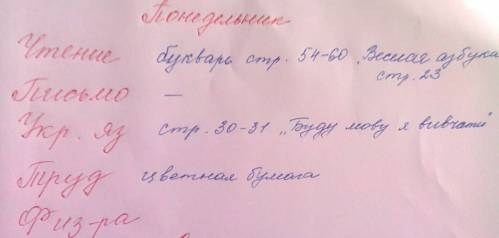 Понедельник
Чтение букварь стр. 54-60 „Веслая азбука
стр. 23
Письмо —
Укр. яз стр. 30-31 „Буду мову я вивчати"
Труд цветная бумага
Физ-ра